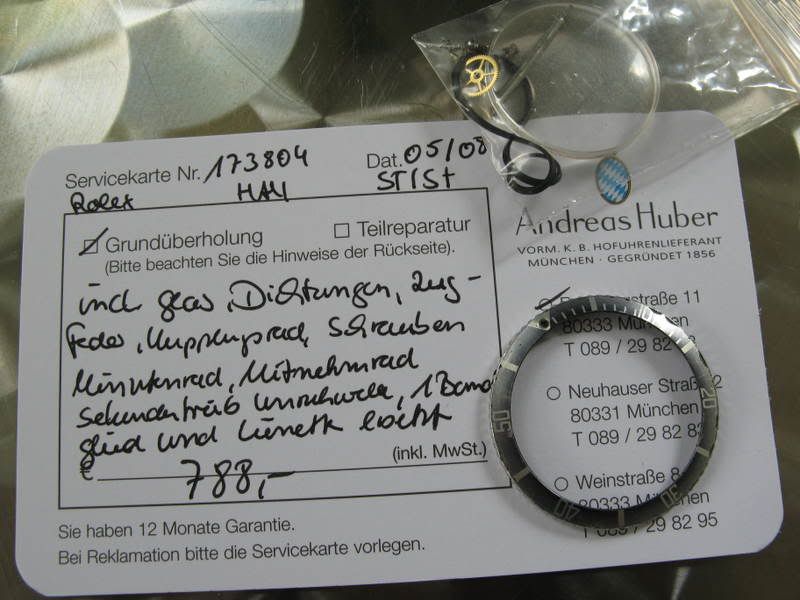 Servicekarte Nr. 173804 Dat. 05/08
Rolex HAY ST/St
☑ Grundüberholung ☐ Teilreparatur
(Bitte beachten Sie die Hinweise der Rückseite).
incl Glas, Dichtungen, Zug-
feder, Kupplungsrad, Schrauben
Minutenrad, Mitnehmrad
Sekundentrieb, 1 Band
glied und Lünette ersetzt
€ 788,- (inkl. MwSt.)
Sie haben 12 Monate Garantie.
Bei Reklamation bitte die Servicekarte vorlegen.
Andreas Huber
VORM. K. B. HOFUHRENLIEFERANT
MÜNCHEN · GEGRÜNDET 1856
straße 11
80333 München
T 089 / 29 82
Neuhauser Straße 2
80331 München
T 089 / 29 82 82
Weinstraße 8
80333 München
T 089 / 29 82 95
20
30
40
50